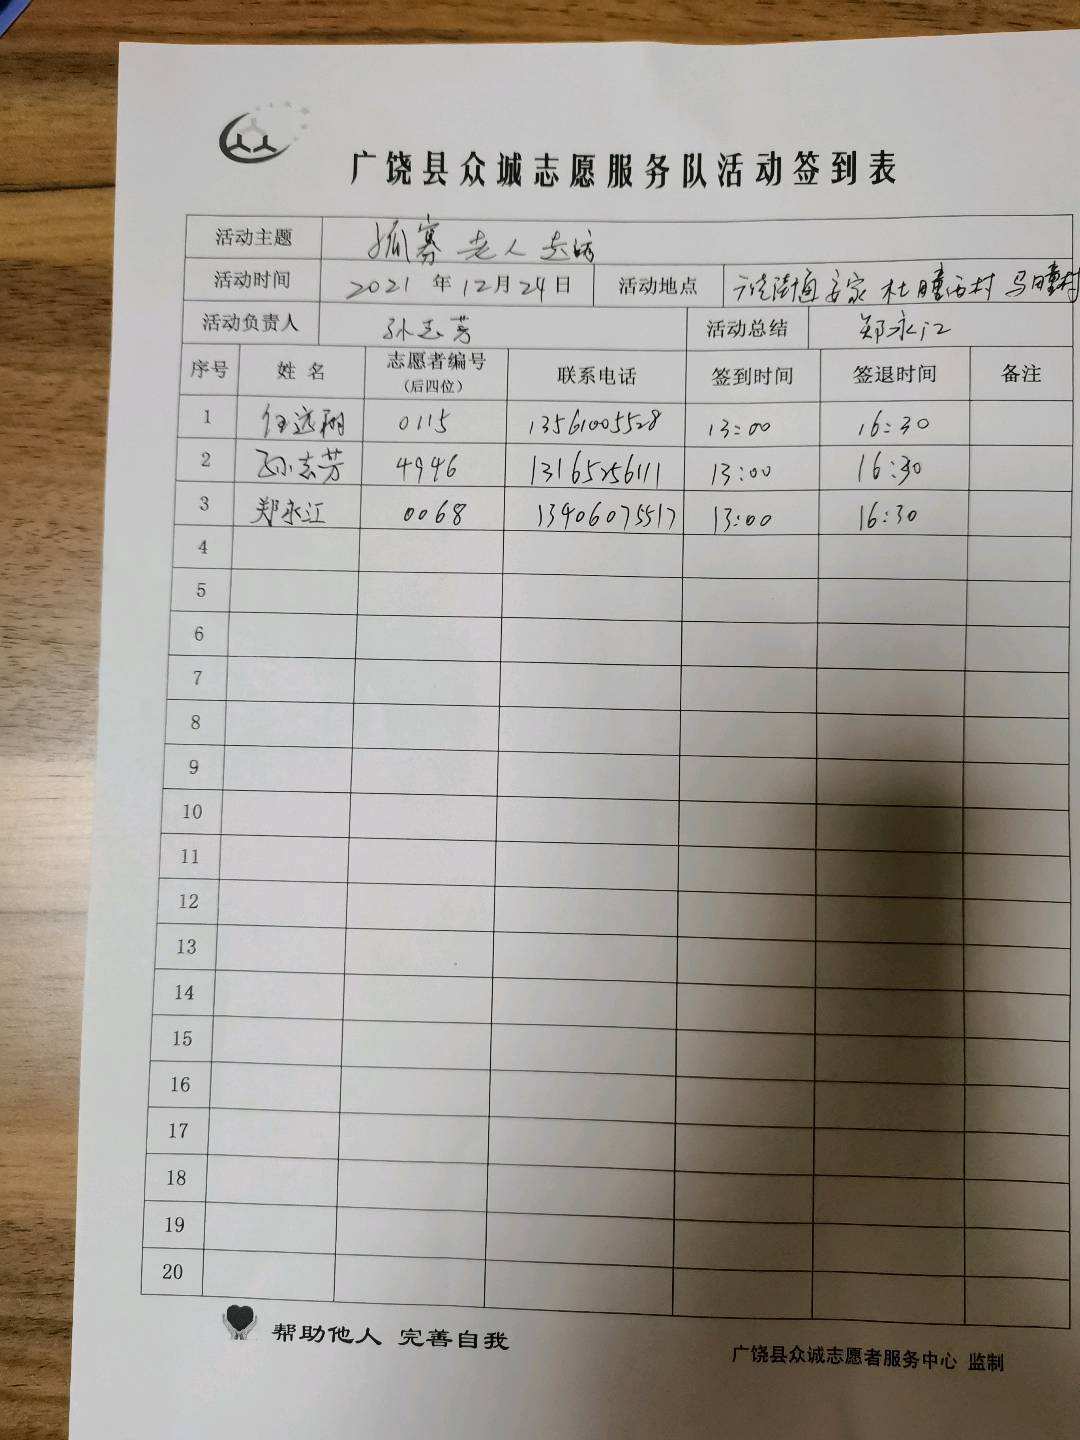 广饶县众诚志愿服务队活动签到表
活动主题 孤寡老人走访
活动时间 2021年12月24日 活动地点 广饶街道 家 杜疃西村 马疃村
活动负责人 孙志芳 活动总结 郑永江
序号 姓名 志愿者编号（后四位） 联系电话 签到时间 签退时间 备注
1 任远翔 0115 13561005528 13:00 16:30
2 孙志芳 4946 13165256111 13:00 16:30
3 郑永江 0068 13406075517 13:00 16:30
4
5
6
7
8
9
10
11
12
13
14
15
16
17
18
19
20
帮助他人 完善自我
广饶县众诚志愿者服务中心 监制